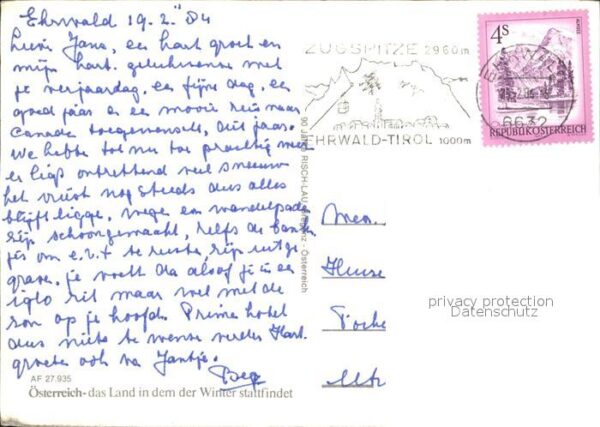 Ehrwald 19.2.'84
Lieve Jana, een hart. groet en
mijn hart. gelukwensen met
je verjaardag, een fijne dag, een
goed jaar en een mooie reis naar
Canada toegewenst, dit jaar.
We hebben tot nu toe prachtig weer
er ligt ontzettend veel sneeuw
het vriest nog steeds dus alles
blijft liggen, wegen en wandelpaden
zijn schoongemaakt, zelfs de bank
jes om e.v.t. te rusten zijn uitge
graven, je voelt da alsof je in een
iglo zit maar wel met de
zon op je hoofd. Prima hotel
dus niets te wensen verder. Hart.
groeten ook van Jantje.
Bep
AF 27.935
Österreich - das Land in dem der Winter stattfindet
ZUGSPITZE 2960m
EHRWALD-TIROL 1000m
4S
REPUBLIK ÖSTERREICH
6632
RISCH-LAU
Österreich
privacy protection
Datenschutz